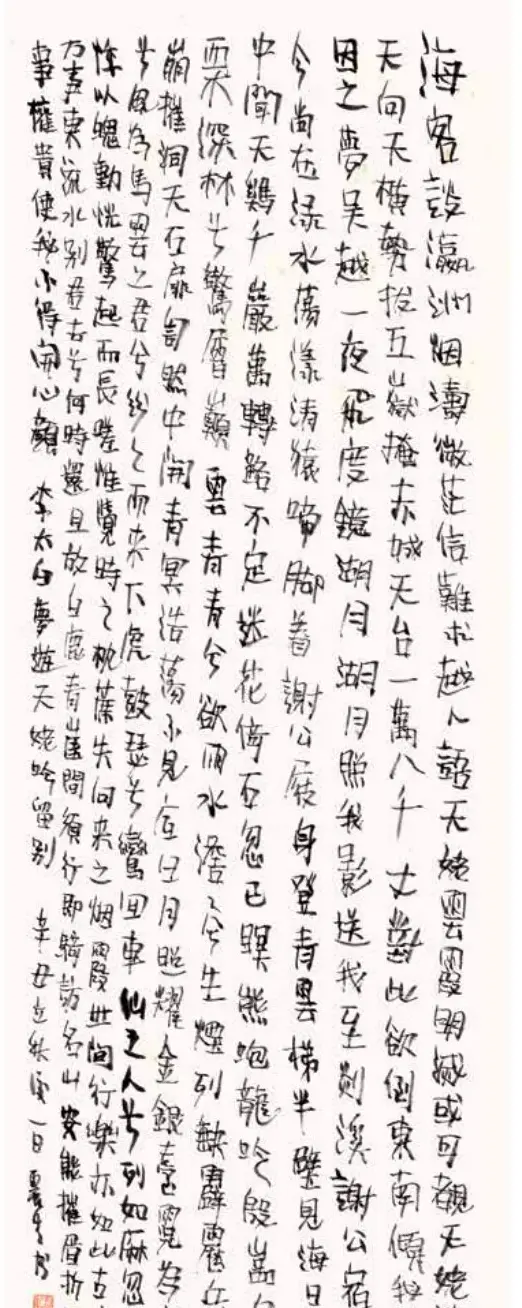 海客談瀛洲烟濤微茫信難求越人語天姥雲霞明滅或可覩天姥
天向天橫勢拔五嶽掩赤城天台一萬八千丈對此欲倒東南傾我
因之夢吳越一夜飛度鏡湖月湖月照我影送我至剡溪謝公宿
今尚在淥水蕩漾清猿啼脚着謝公屐身登青雲梯半壁見海日
中聞天鷄千巖萬轉路不定迷花倚石忽已暝熊咆龍吟殷巖
栗深林兮驚層巔雲青青兮欲雨水澹〻兮生煙列缺霹靂丘
崩摧洞天石扉訇然中開青冥浩蕩不見底日月照耀金銀臺霓為
兮風為馬雲之君兮紛〻而來下虎鼓瑟兮鸞回車仙之人兮列如麻忽
悸以魄動恍驚起而長嗟惟覺時之枕席失向来之烟霞世間行樂亦如此古
万事東流水別君去兮何時還且放白鹿青崖間須行即騎訪名山安能摧眉折
事權貴使我不得開心顏 李太白夢遊天姥吟留别 辛丑立秋後一日 書